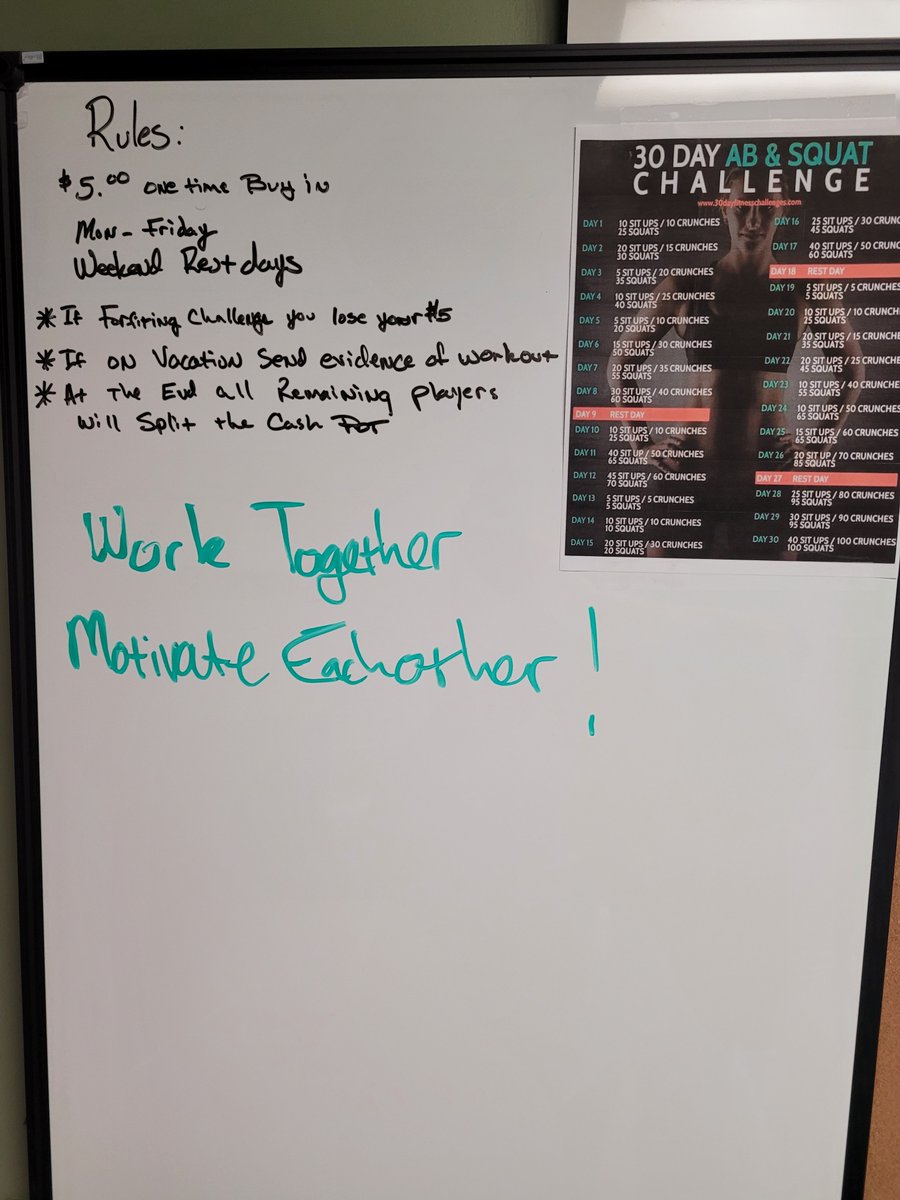 Rules:
$5.00 one time Buy in
Mon-Friday
Weekend Rest days
* If Forfiting Challenge you lose your $5
* If on Vacation Send evidence of workout
* At The End all Remaining players
Will Split the Cash Pot
Work Together
Motivate Eachother!
30 DAY AB & SQUAT
CHALLENGE
www.30dayfitnesschallenges.com
DAY 1 10 SIT UPS / 10 CRUNCHES
25 SQUATS
DAY 2 20 SIT UPS / 15 CRUNCHES
30 SQUATS
DAY 3 5 SIT UPS / 20 CRUNCHES
35 SQUATS
DAY 4 10 SIT UPS / 25 CRUNCHES
40 SQUATS
DAY 5 5 SIT UPS / 10 CRUNCHES
20 SQUATS
DAY 6 15 SIT UPS / 30 CRUNCHES
50 SQUATS
DAY 7 20 SIT UPS / 35 CRUNCHES
55 SQUATS
DAY 8 30 SIT UPS / 40 CRUNCHES
60 SQUATS
DAY 9 REST DAY
DAY 10 10 SIT UPS / 10 CRUNCHES
25 SQUATS
DAY 11 40 SIT UP / 50 CRUNCHES
65 SQUATS
DAY 12 45 SIT UPS / 60 CRUNCHES
70 SQUATS
DAY 13 5 SIT UPS / 5 CRUNCHES
5 SQUATS
DAY 14 10 SIT UPS / 10 CRUNCHES
10 SQUATS
DAY 15 20 SIT UPS / 30 CRUNCHES
20 SQUATS
DAY 16 25 SIT UPS / 30 CRUNC
45 SQUATS
DAY 17 40 SIT UPS / 50 CRUNC
60 SQUATS
DAY 18 REST DAY
DAY 19 5 SIT UPS / 5 CRUNCHES
5 SQUATS
DAY 20 10 SIT UPS / 10 CRUNCH
25 SQUATS
DAY 21 20 SIT UPS / 15 CRUNCH
35 SQUATS
DAY 22 20 SIT UPS / 25 CRUNCH
45 SQUATS
DAY 23 10 SIT UPS / 40 CRUNCH
55 SQUATS
DAY 24 10 SIT UPS / 50 CRUNCH
65 SQUATS
DAY 25 15 SIT UPS / 60 CRUNCHE
65 SQUATS
DAY 26 20 SIT UP / 70 CRUNCHES
85 SQUATS
DAY 27 REST DAY
DAY 28 25 SIT UPS / 80 CRUNCHES
95 SQUATS
DAY 29 30 SIT UPS / 90 CRUNCHES
95 SQUATS
DAY 30 40 SIT UPS / 100 CRUNCHES
100 SQUATS